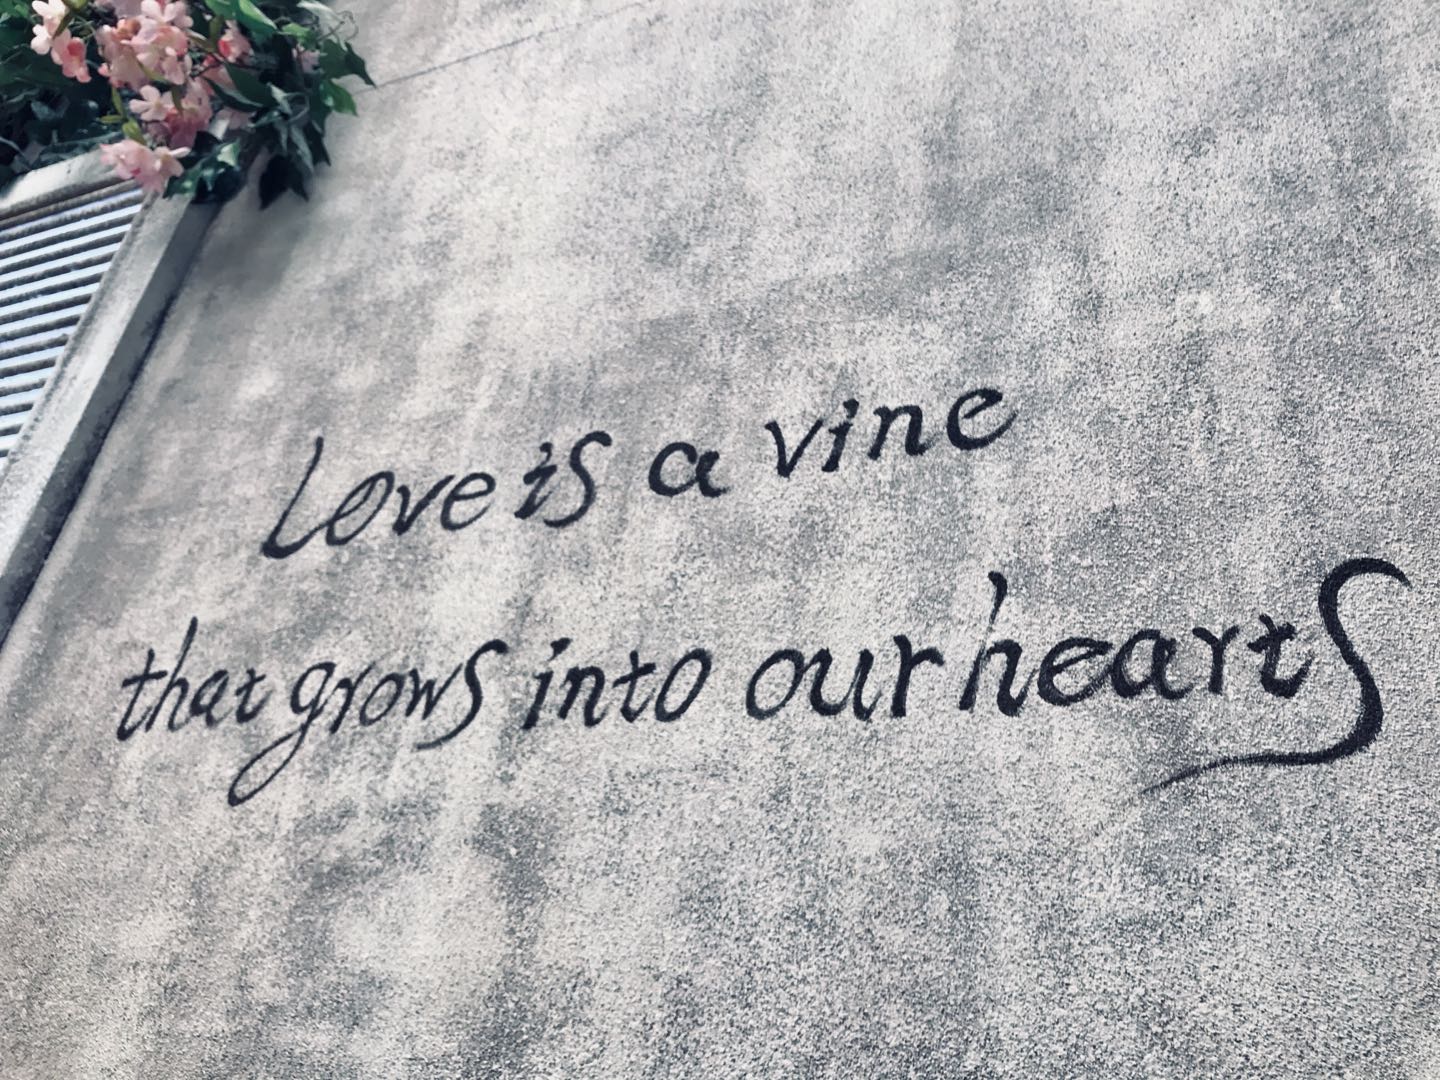 Love is a vine
that grows into our hearts